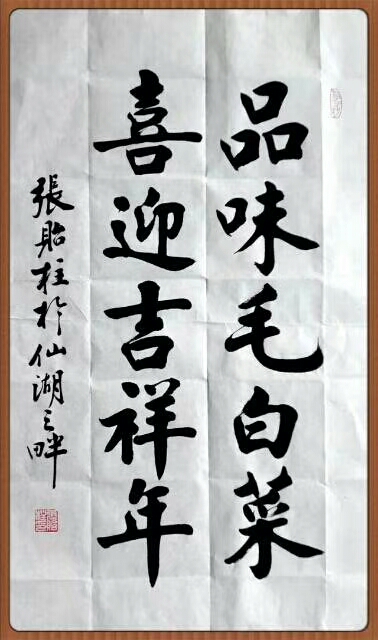 品味毛白菜
喜迎吉祥年
張貽柱於仙湖之畔